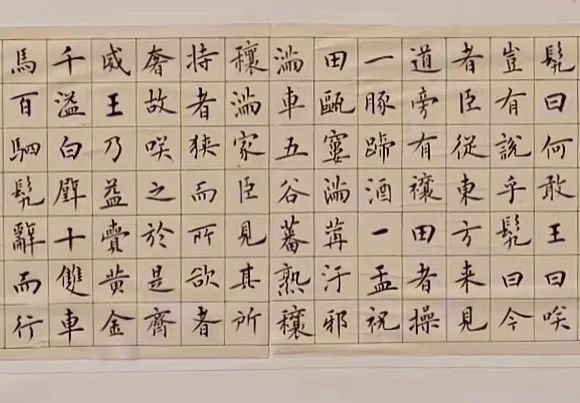 髡曰何敢王曰咲
豈有說乎髡曰今
者臣從東方來見
道旁有禳田者操
一豚蹄酒一盂祝
田甌窶滿篝汙邪
滿車五谷蕃熟穰
穰滿家臣見其所
持者狹而所欲者
奢故咲之於是齊
威王乃益賷黃金
千溢白璧十雙車
馬百駟髡辭而行